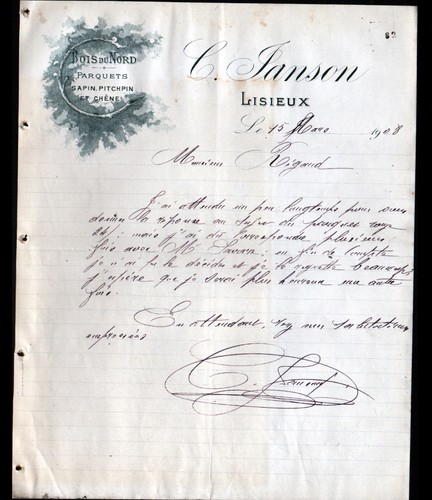 82
BOIS DU NORD
PARQUETS
SAPIN, PITCHPIN
ET CHÊNE
C. Janson
LISIEUX
Le 15 Mars 1908
Monsieur Rigaud
J'ai attendu un peu longtemps pour vous
donner la réponse au sujet du
mais j'ai dû correspondre plusieurs
fois avec Mr en fin de compte
je n'ai pu le décider et je le regrette beaucoup
j'espère que je serai plus heureux une autre
fois.
En attendant, mes salutations
empressées